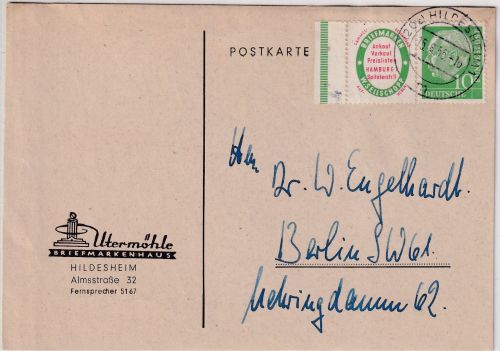 POSTKARTE
BRIEFMARKEN
Ankauf
Verkauf
Preislisten
HAMBURG 1
Spitalerstr. 11
HILDESHEIM
10
DEUTSCHE
Herrn
Dr. W. Engelhardt.
Berlin SW 61.
Mehringdamm 62.
Utermöhle
BRIEFMARKENHAUS
HILDESHEIM
Almsstraße 32
Fernsprecher 5167